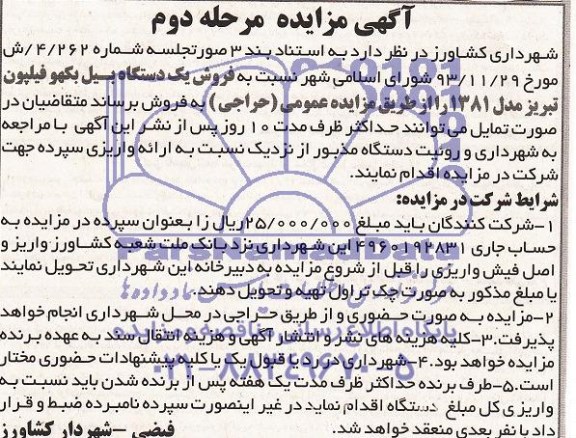 آگهی مزایده مرحله دوم
شهرداری کشاورز در نظر دارد به استناد بند ۳ صورتجلسه شماره ۴/۲۶۲/ش
مورخ ۹۳/۱۱/۲۹ شورای اسلامی شهر نسبت به فروش یک دستگاه بیل بکهو فیلپون
تبریز مدل ۱۳۸۱ را از طریق مزایده عمومی (حراجی) به فروش برساند متقاضیان در
صورت تمایل می‌توانند حداکثر ظرف مدت ۱۰ روز پس از نشر این آگهی با مراجعه
به شهرداری و رونیت دستگاه مذبور از نزدیک نسبت به ارائه واریزی سپرده جهت
شرکت در مزایده اقدام نمایند.
شرایط شرکت در مزایده:
۱-شرکت کنندگان باید مبلغ ۲۵/۰۰۰/۰۰۰ریال را بعنوان سپرده در مزایده به
حساب جاری ۴۹۶۰۱۹۲۸۳۱ این شهرداری نزد بانک ملت شعبه کشاورز واریز و
اصل فیش واریزی را قبل از شروع مزایده به دبیرخانه این شهرداری تحویل نمایند
یا مبلغ مذکور به صورت چک تراول تهیه و تحویل دهند.
۲-مزایده به صورت حضوری و از طریق حراجی در محل شهرداری انجام خواهد
پذیرفت.۳-کلیه هزینه های نشر و انتشار آگهی و هزینه انتقال سند به عهده برنده
مزایده خواهد بود.۴-شهرداری در رد یا قبول یک یا کلیه پیشنهادات حضوری مختار
است.۵-طرف برنده حداکثر ظرف مدت یک هفته پس از برنده شدن باید نسبت به
واریزی کل مبلغ دستگاه اقدام نماید در غیر اینصورت سپرده نامبرده ضبط و قرار
داد با نفر بعدی منعقد خواهد شد.
فیضی -شهردار کشاورز
ParsNamadData
پایگاه اطلاع رسانی مناقصه و مزایده
۰۲۱-۸۸۳۴۹۶۷۰-۵